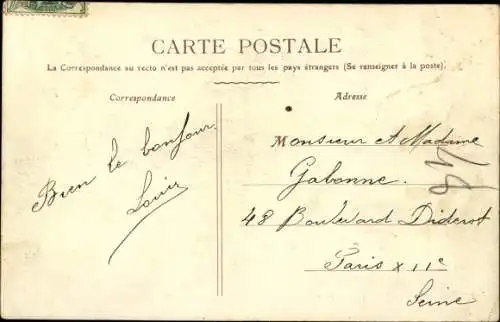 CARTE POSTALE
La Correspondance au recto n'est pas acceptée par tous les pays étrangers (Se renseigner à la poste).
Correspondance
Adresse
Bien le bonjour
Louis
Monsieur et Madame
Gabonne.
48 Boulevard Diderot
Paris x 11e
Seine
48